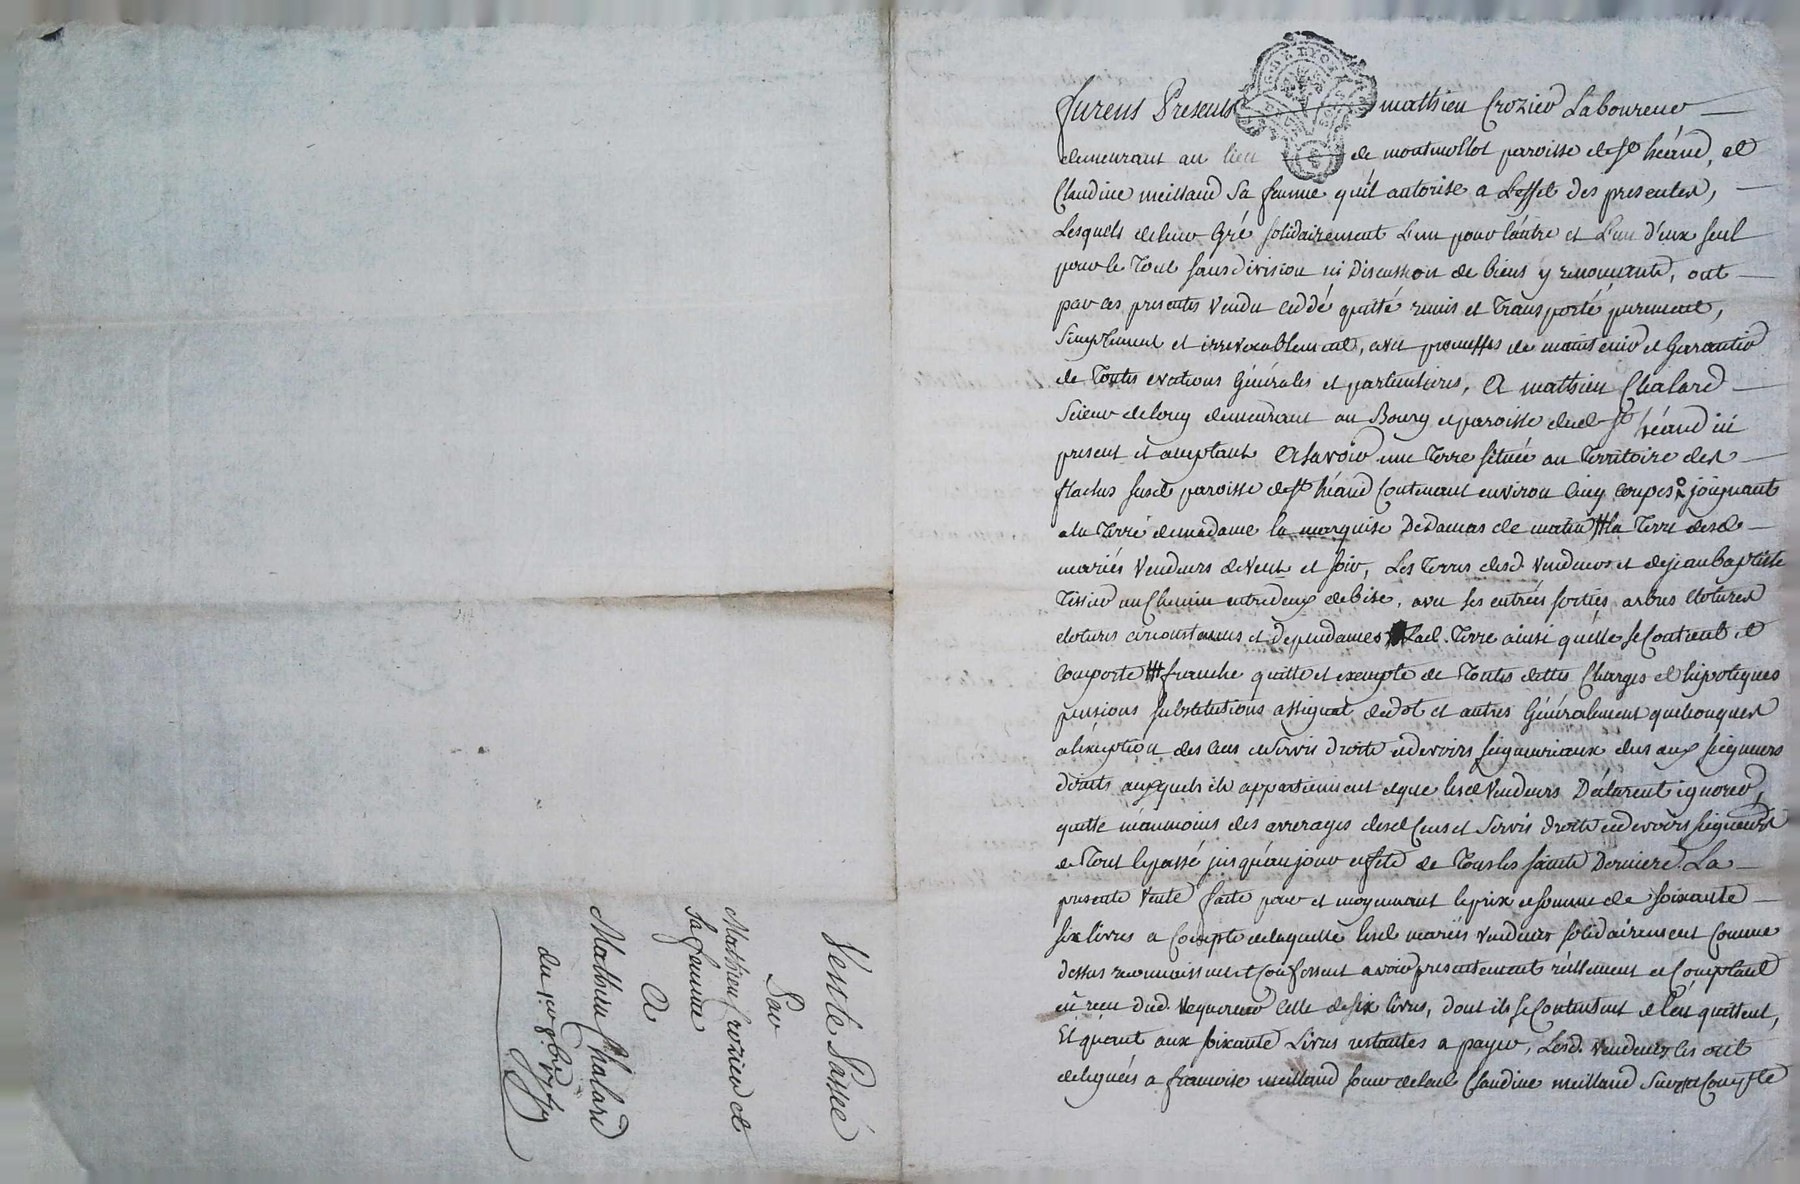 Vente Passée
Par
Mathieu Crozier et
Sa femme
A
Mathieu Chalard
du 1er 8bre
furent Presents mathieu Crozier Laboureur
demeurant au lieu de montmollot paroisse de St héand, et
Claudine meilland Sa femme qu'il autorise a L'effet des presentes,
Lesquels de leur Gré solidairement L'un pour l'autre et L'un d'eux seul
pour le Tout sans division ni Discussion de biens y renonçants, ont
par ces presentes vendu ceddé quitté remis et Transporté purement,
simplement et irrevocablement, avec promesses de maintenir et Garantir
de Toutes evictions Générales et particulieres, A mathieu Chalard
Scieur de long demeurant au Bourg et paroisse dud St héand ici
present et acceptant Asavoir une Terre située au Territoire des
flaches susd paroisse de St héand Contenant environ Cinq coupes joignant
a la Terre de madame la marquise DeDamas de matin la Terre desd
mariés Vendeurs de Vent et soir, Les Terres desd. Vendeurs et de jean baptiste
Tissier un Chemin entredeux de bise, avec ses entrées sorties arbres clotures
clotures circonstances et dependances Lad. Terre ainsi qu'elle se Contient et
Comporte franche quitte et exempte de Toutes dettes Charges et hipoteques
pensions substitutions assignat de dot et autres Généralement quelconques
a l'exeption des cens et servis droits et devoirs seigneuriaux dus aux seigneurs
directs auxquels ils appartiennent et que lesd Vendeurs Déclarent ignorer,
quitte néanmoins des arrerages desd Cens et Servis droits et devoirs seigneurx
de Tout le passé jusqu'au jour et fete de Tous les saints Derniere. La
presente Vente faite pour et moyennant le prix et somme de soixante
six livres a Compte de laquelle lesd mariés Vendeurs solidairement comme
dessus reconnaissent et Confessent avoir presentement réellement et Comptant
eû reçu dud. acquereur celle de six livres, dont ils se Contentent et l'en quittent,
Et quant aux soixante Livres restantes a payer, Lesd. Vendeurs les ont
delegués a francoise meilland soeur de lad. Claudine meilland Sur et a Compte